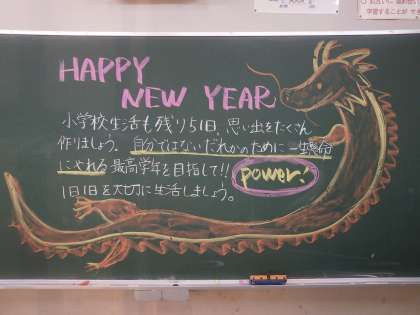 HAPPY
NEW YEAR
小学校生活も残り51日、思い出をたくさん
作りましょう。自分ではないだれかのために一生懸命
にやれる最高学年を目指して!!
power!
1日1日を大切に生活しましょう。
学習することができ